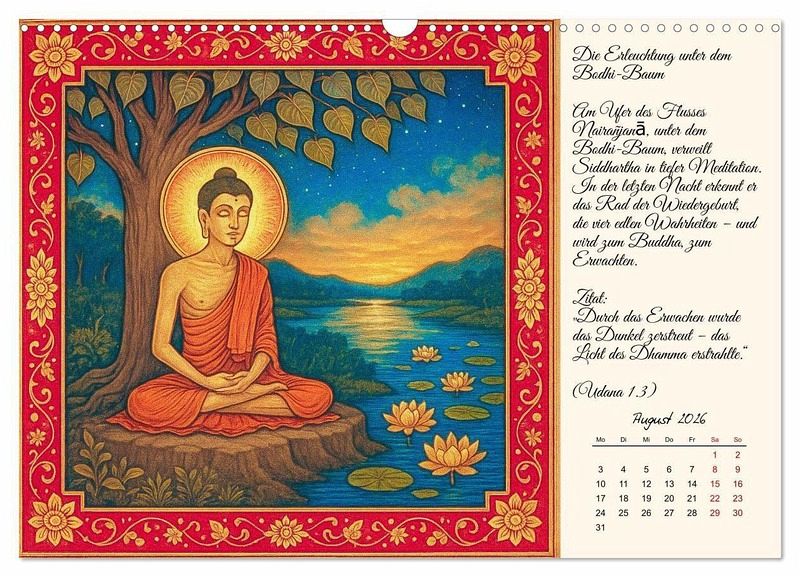 Die Erleuchtung unter dem
Bodhi-Baum
Am Ufer des Flusses
Nairañjanā, unter dem
Bodhi-Baum, verweilt
Siddhartha in tiefer Meditation.
In der letzten Nacht erkennt er
das Rad der Wiedergeburt,
die vier edlen Wahrheiten – und
wird zum Buddha, zum
Erwachten.
Zitat:
„Durch das Erwachen wurde
das Dunkel zerstreut – das
Licht des Dhamma erstrahlte.“
(Udana 1.3)
August 2026
Mo Di Mi Do Fr Sa So
1 2
3 4 5 6 7 8 9
10 11 12 13 14 15 16
17 18 19 20 21 22 23
24 25 26 27 28 29 30
31